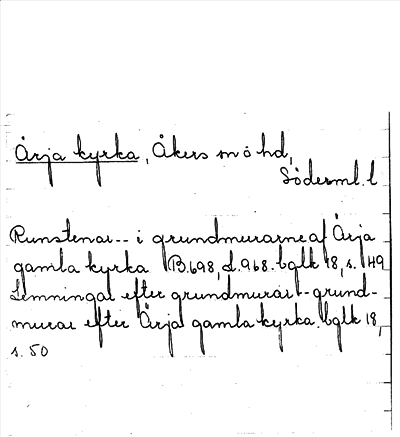 Ärja kyrka, Åkers m ö hd,
Söderml. l
Runstenar -- i grundmurarne af Ärja
gamla kyrka B. 698, L. 968. bglk 18, s. 149
Lemningar efter grundmurar -- grund-
murar efter Ärja gamla kyrka. bglk 18,
s. 50